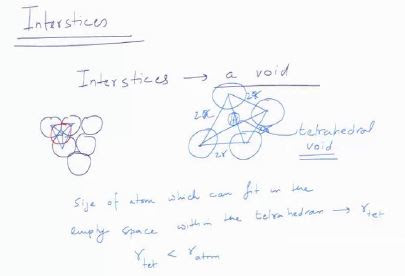 Interstices
Interstices → a void
2r
2r
2r
tetrahedral
void
Size of atom which can fit in the
empty space within the tetrahedran → r_tet
r_tet < r_atom